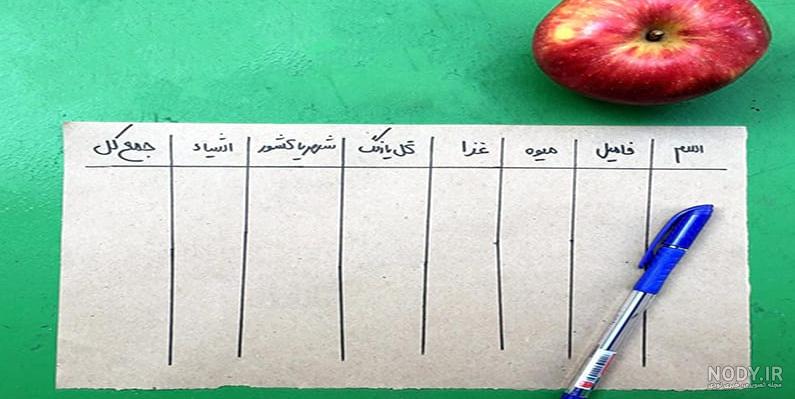 اسم فامیل میوه غذا گل یا رنگ شهر یا کشور اشیاء جمع کل
NODY.IR